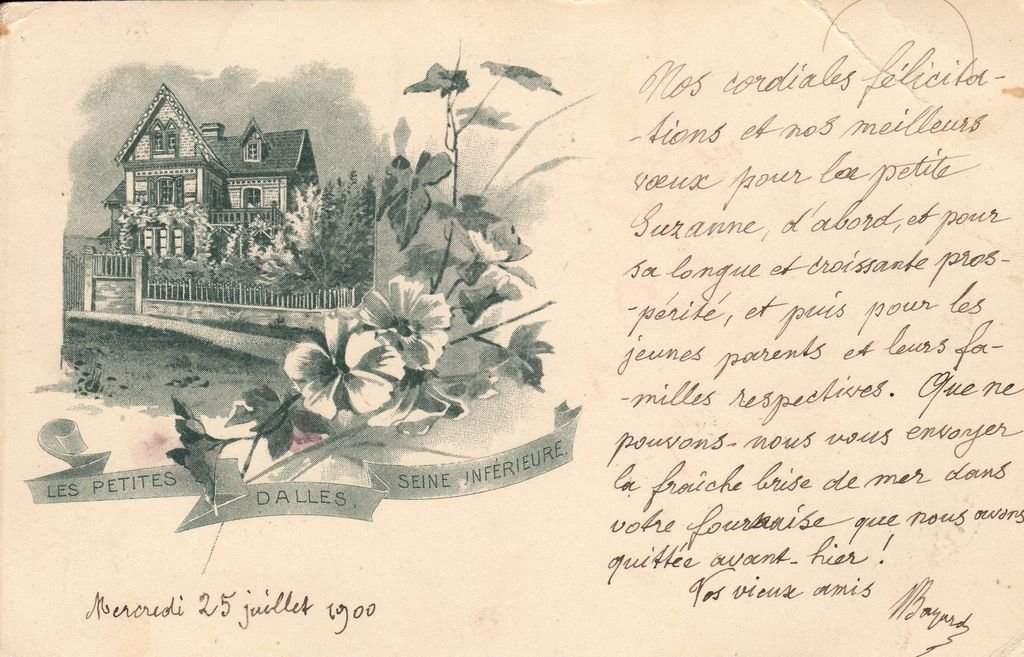 Nos cordiales félicita-
-tions et nos meilleurs
vœux pour la petite
Suzanne, d'abord, et pour
sa longue et croissante pros-
-périté, et puis pour les
jeunes parents et leurs fa-
-milles respectives. Que ne
pouvons-nous vous envoyer
la fraîche brise de mer dans
votre fournaise que nous avons
quittée avant-hier !
Vos vieux amis
Bayard
LES PETITES DALLES, SEINE INFÉRIEURE.
Mercredi 25 juillet 1900